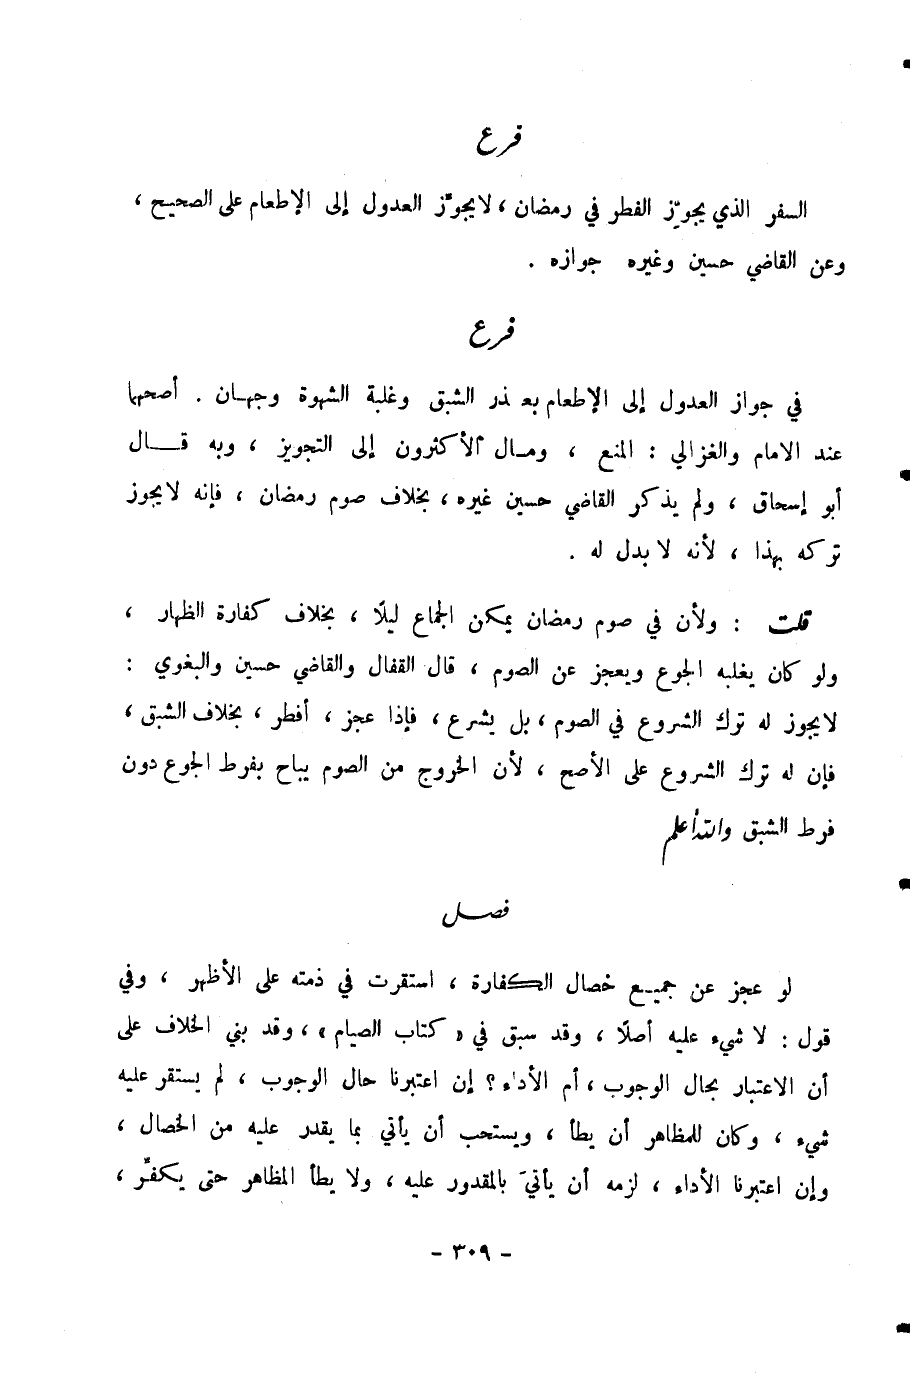 فرع
السفر الذي يجوِّز الفطر في رمضان ، لا يجوِّز العدول إلى الإطعام على الصحيح ،
وعن القاضي حسين وغيره جوازه .
فرع
في جواز العدول إلى الإطعام بعذر الشبق وغلبة الشهوة وجهان . أصحها
عند الامام والغزالي : المنع ، ومال الأكثرون إلى التجويز ، وبه قال
أبو إسحاق ، ولم يذكر القاضي حسين غيره ، بخلاف صوم رمضان ، فإنه لا يجوز
تركه بهذا ، لأنه لا بدل له .
قلت : ولأن في صوم رمضان يمكن الجماع ليلًا ، بخلاف كفارة الظهار ،
ولو كان يغلبه الجوع ويعجز عن الصوم ، قال القفال والقاضي حسين والبغوي :
لا يجوز له ترك الشروع في الصوم ، بل يشرع ، فإذا عجز ، أفطر ، بخلاف الشبق ،
فإن له ترك الشروع على الأصح ، لأن الخروج من الصوم يباح بفرط الجوع دون
فرط الشبق والله أعلم
فصل
لو عجز عن جميع خصال الكفارة ، استقرت في ذمته على الأظهر ، وفي
قول : لا شيء عليه أصلًا ، وقد سبق في « كتاب الصيام » ، وقد بني الخلاف على
أن الاعتبار بحال الوجوب ، أم الأداء ؟ إن اعتبرنا حال الوجوب ، لم يستقر عليه
شيء ، وكان للمظاهر أن يطأ ، ويستحب أن يأتي بما يقدر عليه من الخصال ،
وإن اعتبرنا الأداء ، لزمه أن يأتيَ بالمقدور عليه ، ولا يطأ المظاهر حتى يكفِّر ،
- ٣٠٩ -